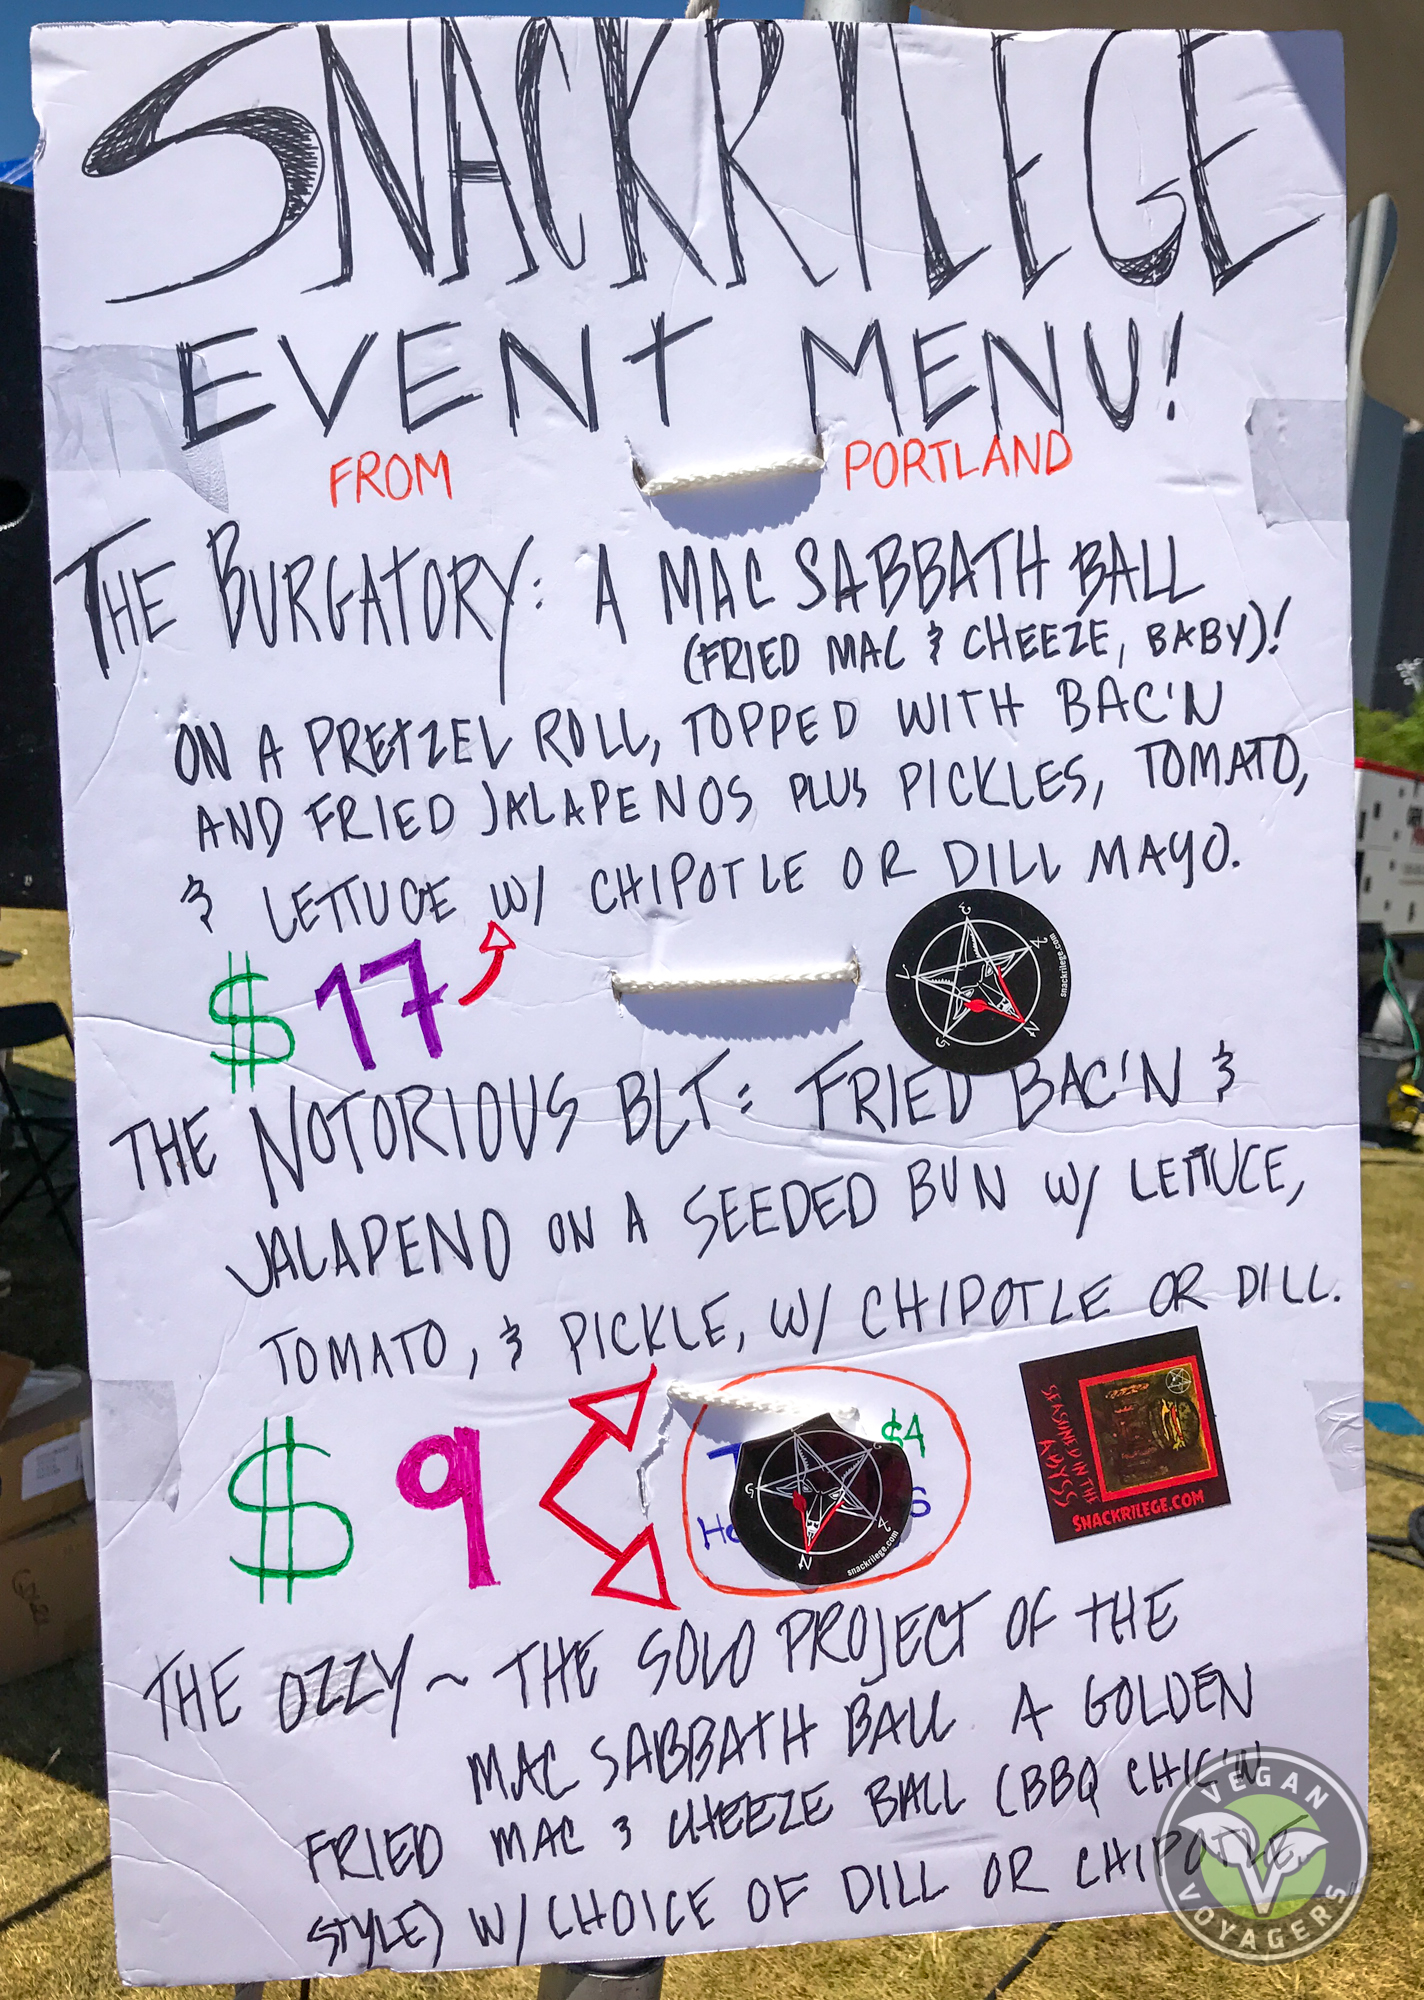 SNACKRILEGE
EVENT MENU!
FROM PORTLAND
THE BURGATORY: A MAC SABBATH BALL
(FRIED MAC & CHEEZE, BABY)!
ON A PRETZEL ROLL, TOPPED WITH BAC'N
AND FRIED JALAPENOS PLUS PICKLES, TOMATO,
& LETTUCE W/ CHIPOTLE OR DILL MAYO.
$17
snackrilege.com
THE NOTORIOUS BLT: FRIED BAC'N &
JALAPENO ON A SEEDED BUN W/ LETTUCE,
TOMATO, & PICKLE, W/ CHIPOTLE OR DILL.
$9
$4
snackrilege.com
SEASONED IN THE
ABYSS
SNACKRILEGE.COM
THE OZZY ~ THE SOLO PROJECT OF THE
MAC SABBATH BALL. A GOLDEN
FRIED MAC & CHEEZE BALL (BBQ CHIC'N
STYLE) W/ CHOICE OF DILL OR CHIPOTLE
VEGAN
VOYAGERS